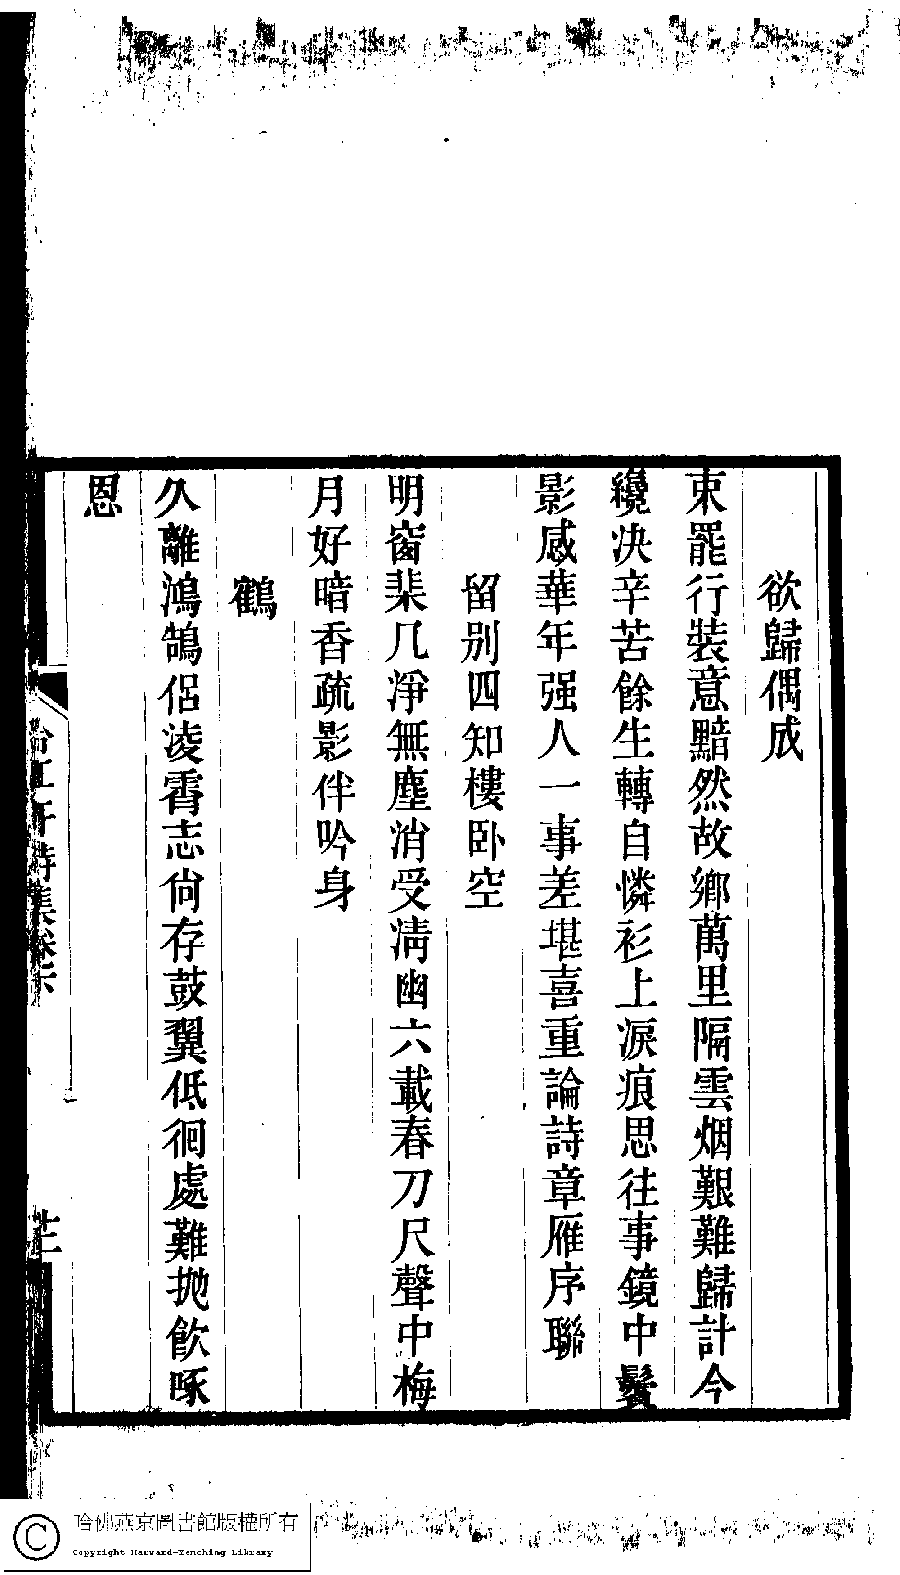 欲歸偶成
束罷行裝意黯然故鄉萬里隔雲烟艱難歸計今
纔决辛苦餘生轉自憐衫上淚痕思往事鏡中鬢
影感華年强人一事差堪喜重論詩章雁序聯
留别四知樓卧空
明窗棐几淨無塵消受淸幽六載春刀尺聲中梅
月好暗香疏影伴吟身
鶴
久離鴻鵠侶淩霄志尙存鼓翼低徊處難拋飮啄
恩
詩集卷六
哈佛燕京圖書館版權所有
Copyright Harvard-Yenching Library